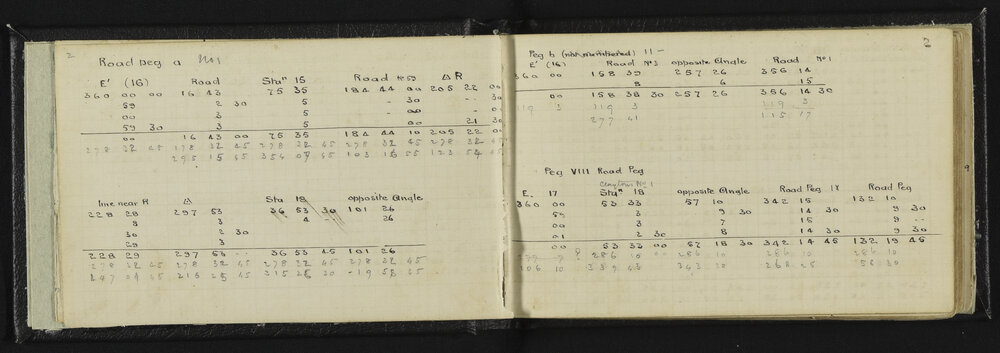 2
Road peg a No 1
E' (16) Road Stan 15 Road No 59 Δ R
360 00 00 16 43 75 35 184 44 00 205 22 00
59 2 30 5 - 30 - 30
00 3 5 - 00 - 00
59 30 3 5 00 21 30
00 16 43 00 75 35 184 44 10 205 22 00
278 32 45 178 32 45 278 32 45 278 32 45 278 32 45
295 15 45 354 07 45 103 16 55 123 54 45
line near R Δ Sta 18 opposite Angle
228 28 297 53 36 53 30 101 26
8 3 4 -- 26
30 2 30
29 3
228 29 297 53 -- 36 53 45 101 26
278 32 45 278 32 45 278 32 45 278 32 45
147 01 45 216 25 45 315 26 30 -19 58 45
3
Peg b (not numbered) 11 -
E' (16) Road No 3 opposite Angle Road No 1
360 00 158 39 257 26 356 14
8 6 15
00 158 38 30 257 26 356 14 30
119 3 119 3 119 3
277 41 115 17
Peg VIII Road Peg
Claytons No 1
E. 17 Stan 18 opposite Angle Road Peg IX Road Peg
360 00 53 33 57 10 342 15 132 10
59 3 9 30 14 30 9 30
00 3 7 15 9 --
01 2 30 8 14 30 9 30
00 53 33 00 57 18 30 342 14 45 132 19 45
286 10 286 10 286 10 286 10
106 10 339 43 343 20 268 25 58 30